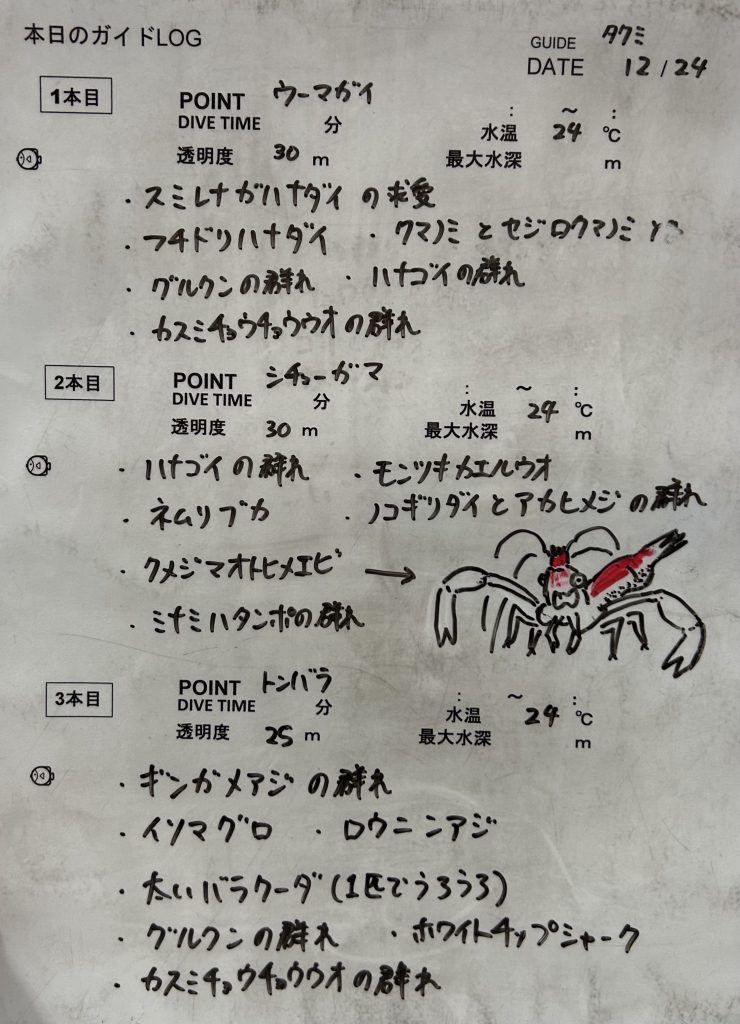 本日のガイドLOG
GUIDE タクミ
DATE 12/24
1本目 POINT ウーマガイ : ~ :
DIVE TIME 分 水温 24 ℃
透明度 30 m 最大水深 m
・スミレナガハナダイの求愛
・フチドリハナダイ ・クマノミとセジロクマノミ
・グルクンの群れ ・ハナゴイの群れ
・カスミチョウチョウウオの群れ
2本目 POINT シチューガマ : ~ :
DIVE TIME 分 水温 24 ℃
透明度 30 m 最大水深 m
・ハナゴイの群れ ・モンツキカエルウオ
・ネムリブカ ・ノコギリダイとアカヒメジの群れ
・クメジマオトヒメエビ →
・ミナミハタンポの群れ
3本目 POINT トンバラ : ~ :
DIVE TIME 分 水温 24 ℃
透明度 25 m 最大水深 m
・ギンガメアジの群れ
・イソマグロ ・ロウニンアジ
・太いバラクーダ(1匹でうろうろ)
・グルクンの群れ ・ホワイトチップシャーク
・カスミチョウチョウウオの群れ